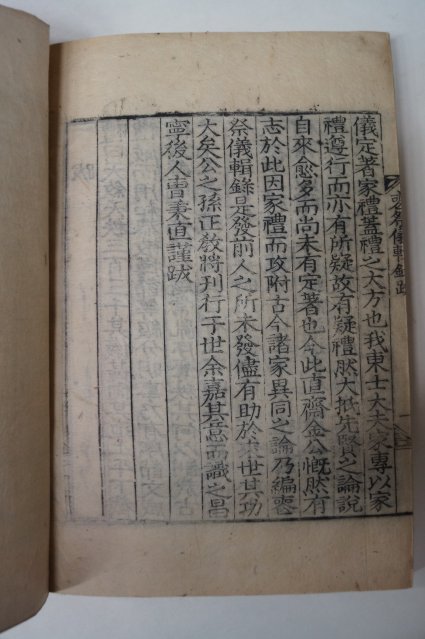 喪祭儀輯錄跋
儀定著家禮蓋禮之大方也我東士大夫家專以家
禮遵行而亦有所疑故有疑禮然大抵先賢之論說
自來愈多而尚未有定著也今此直齋金公慨然有
志於此因家禮而攷附古今諸家異同之論乃編喪
祭儀輯錄是發前人之所未發儘有助於來世其功
大矣公之孫正教將刊行于世余嘉其志而識之昌
寧後人曺秉直謹跋